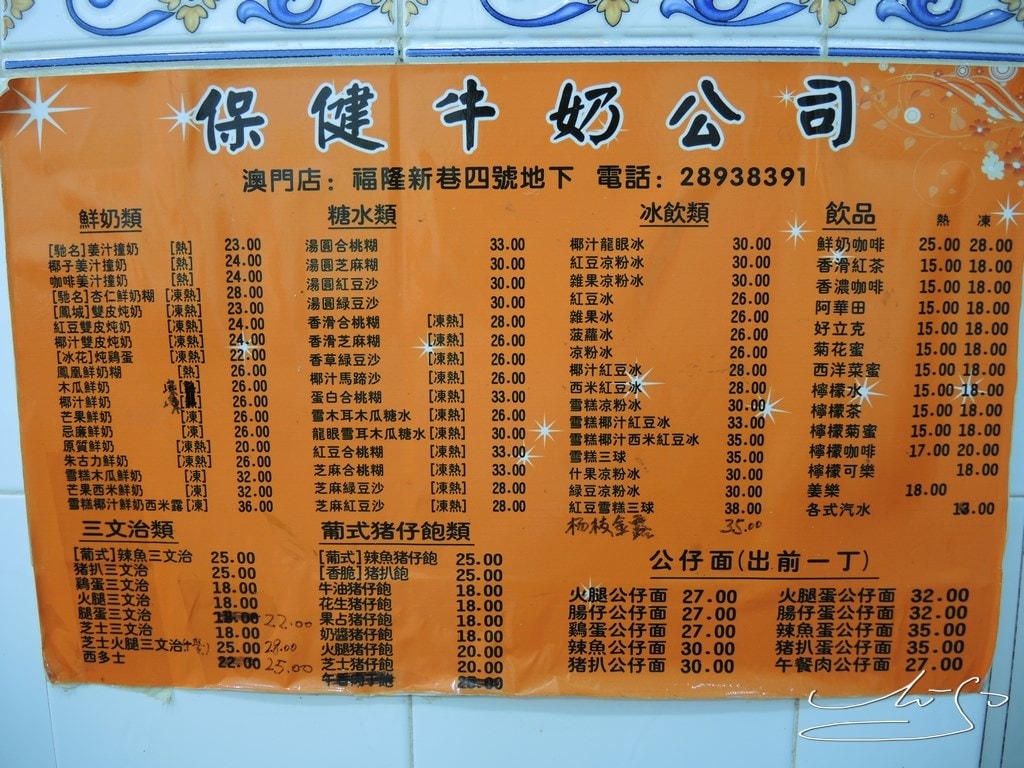 保健牛奶公司
澳門店：福隆新巷四號地下 電話：28938391
鮮奶類
[馳名]姜汁撞奶 [熱] 23.00
椰子姜汁撞奶 [熱] 24.00
咖啡姜汁撞奶 [熱] 24.00
[馳名]杏仁鮮奶糊 [凍熱] 28.00
[鳳城]雙皮炖奶 [凍熱] 23.00
紅豆雙皮炖奶 [凍熱] 24.00
椰汁雙皮炖奶 [凍熱] 24.00
[冰花]炖鷄蛋 [凍熱] 22.00
鳳凰鮮奶糊 [熱] 26.00
木瓜鮮奶 26.00
椰汁鮮奶 26.00
芒果鮮奶 [凍] 26.00
忌廉鮮奶 [凍] 26.00
原質鮮奶 [凍熱] 20.00
朱古力鮮奶 [凍熱] 26.00
雪糕木瓜鮮奶 [凍] 32.00
芒果西米鮮奶 [凍] 32.00
雪糕椰汁鮮奶西米露 [凍] 36.00
糖水類
湯圓合桃糊 33.00
湯圓芝麻糊 30.00
湯圓紅豆沙 30.00
湯圓綠豆沙 30.00
香滑合桃糊 [凍熱] 28.00
香滑芝麻糊 [凍熱] 26.00
香草綠豆沙 [凍熱] 26.00
椰汁馬蹄沙 [凍熱] 26.00
蛋白合桃糊 [凍熱] 33.00
雪木耳木瓜糖水 [凍熱] 26.00
龍眼雪耳木瓜糖水 [凍熱] 30.00
紅豆合桃糊 [凍熱] 33.00
芝麻合桃糊 [凍熱] 33.00
芝麻綠豆沙 [凍熱] 28.00
芝麻紅豆沙 [凍熱] 28.00
冰飲類
椰汁龍眼冰 30.00
紅豆凉粉冰 30.00
雜果凉粉冰 30.00
紅豆冰 26.00
雜果冰 26.00
菠蘿冰 26.00
凉粉冰 26.00
椰汁紅豆冰 28.00
西米紅豆冰 28.00
雪糕凉粉冰 30.00
雪糕椰汁紅豆冰 33.00
雪糕椰汁西米紅豆冰 35.00
雪糕三球 35.00
什果凉粉冰 30.00
綠豆凉粉冰 30.00
紅豆雪糕三球 38.00
杨枝金露 35.00
飲品 熱 凍
鮮奶咖啡 25.00 28.00
香滑紅茶 15.00 18.00
香濃咖啡 15.00 18.00
阿華田 15.00 18.00
好立克 15.00 18.00
菊花蜜 15.00 18.00
西洋菜蜜 15.00 18.00
檸檬水 15.00 18.00
檸檬茶 15.00 18.00
檸檬菊蜜 15.00 18.00
檸檬咖啡 17.00 20.00
檸檬可樂 18.00
姜樂 18.00
各式汽水
三文治類
[葡式]辣魚三文治 25.00
猪扒三文治 25.00
鷄蛋三文治 18.00
火腿三文治 18.00
腿蛋三文治 18.00 22.00
芝士三文治 18.00
芝士火腿三文治 25.00 28.00
西多士 22.00 25.00
葡式猪仔飽類
[葡式]辣魚猪仔飽 25.00
[香脆]猪扒飽 25.00
牛油猪仔飽 18.00
花生猪仔飽 18.00
果占猪仔飽 18.00
奶醬猪仔飽 18.00
火腿猪仔飽 20.00
芝士猪仔飽 20.00
公仔面(出前一丁)
火腿公仔面 27.00 火腿蛋公仔面 32.00
腸仔公仔面 27.00 腸仔蛋公仔面 32.00
鷄蛋公仔面 27.00 辣魚蛋公仔面 35.00
辣魚公仔面 30.00 猪扒蛋公仔面 35.00
猪扒公仔面 30.00 午餐肉公仔面 27.00